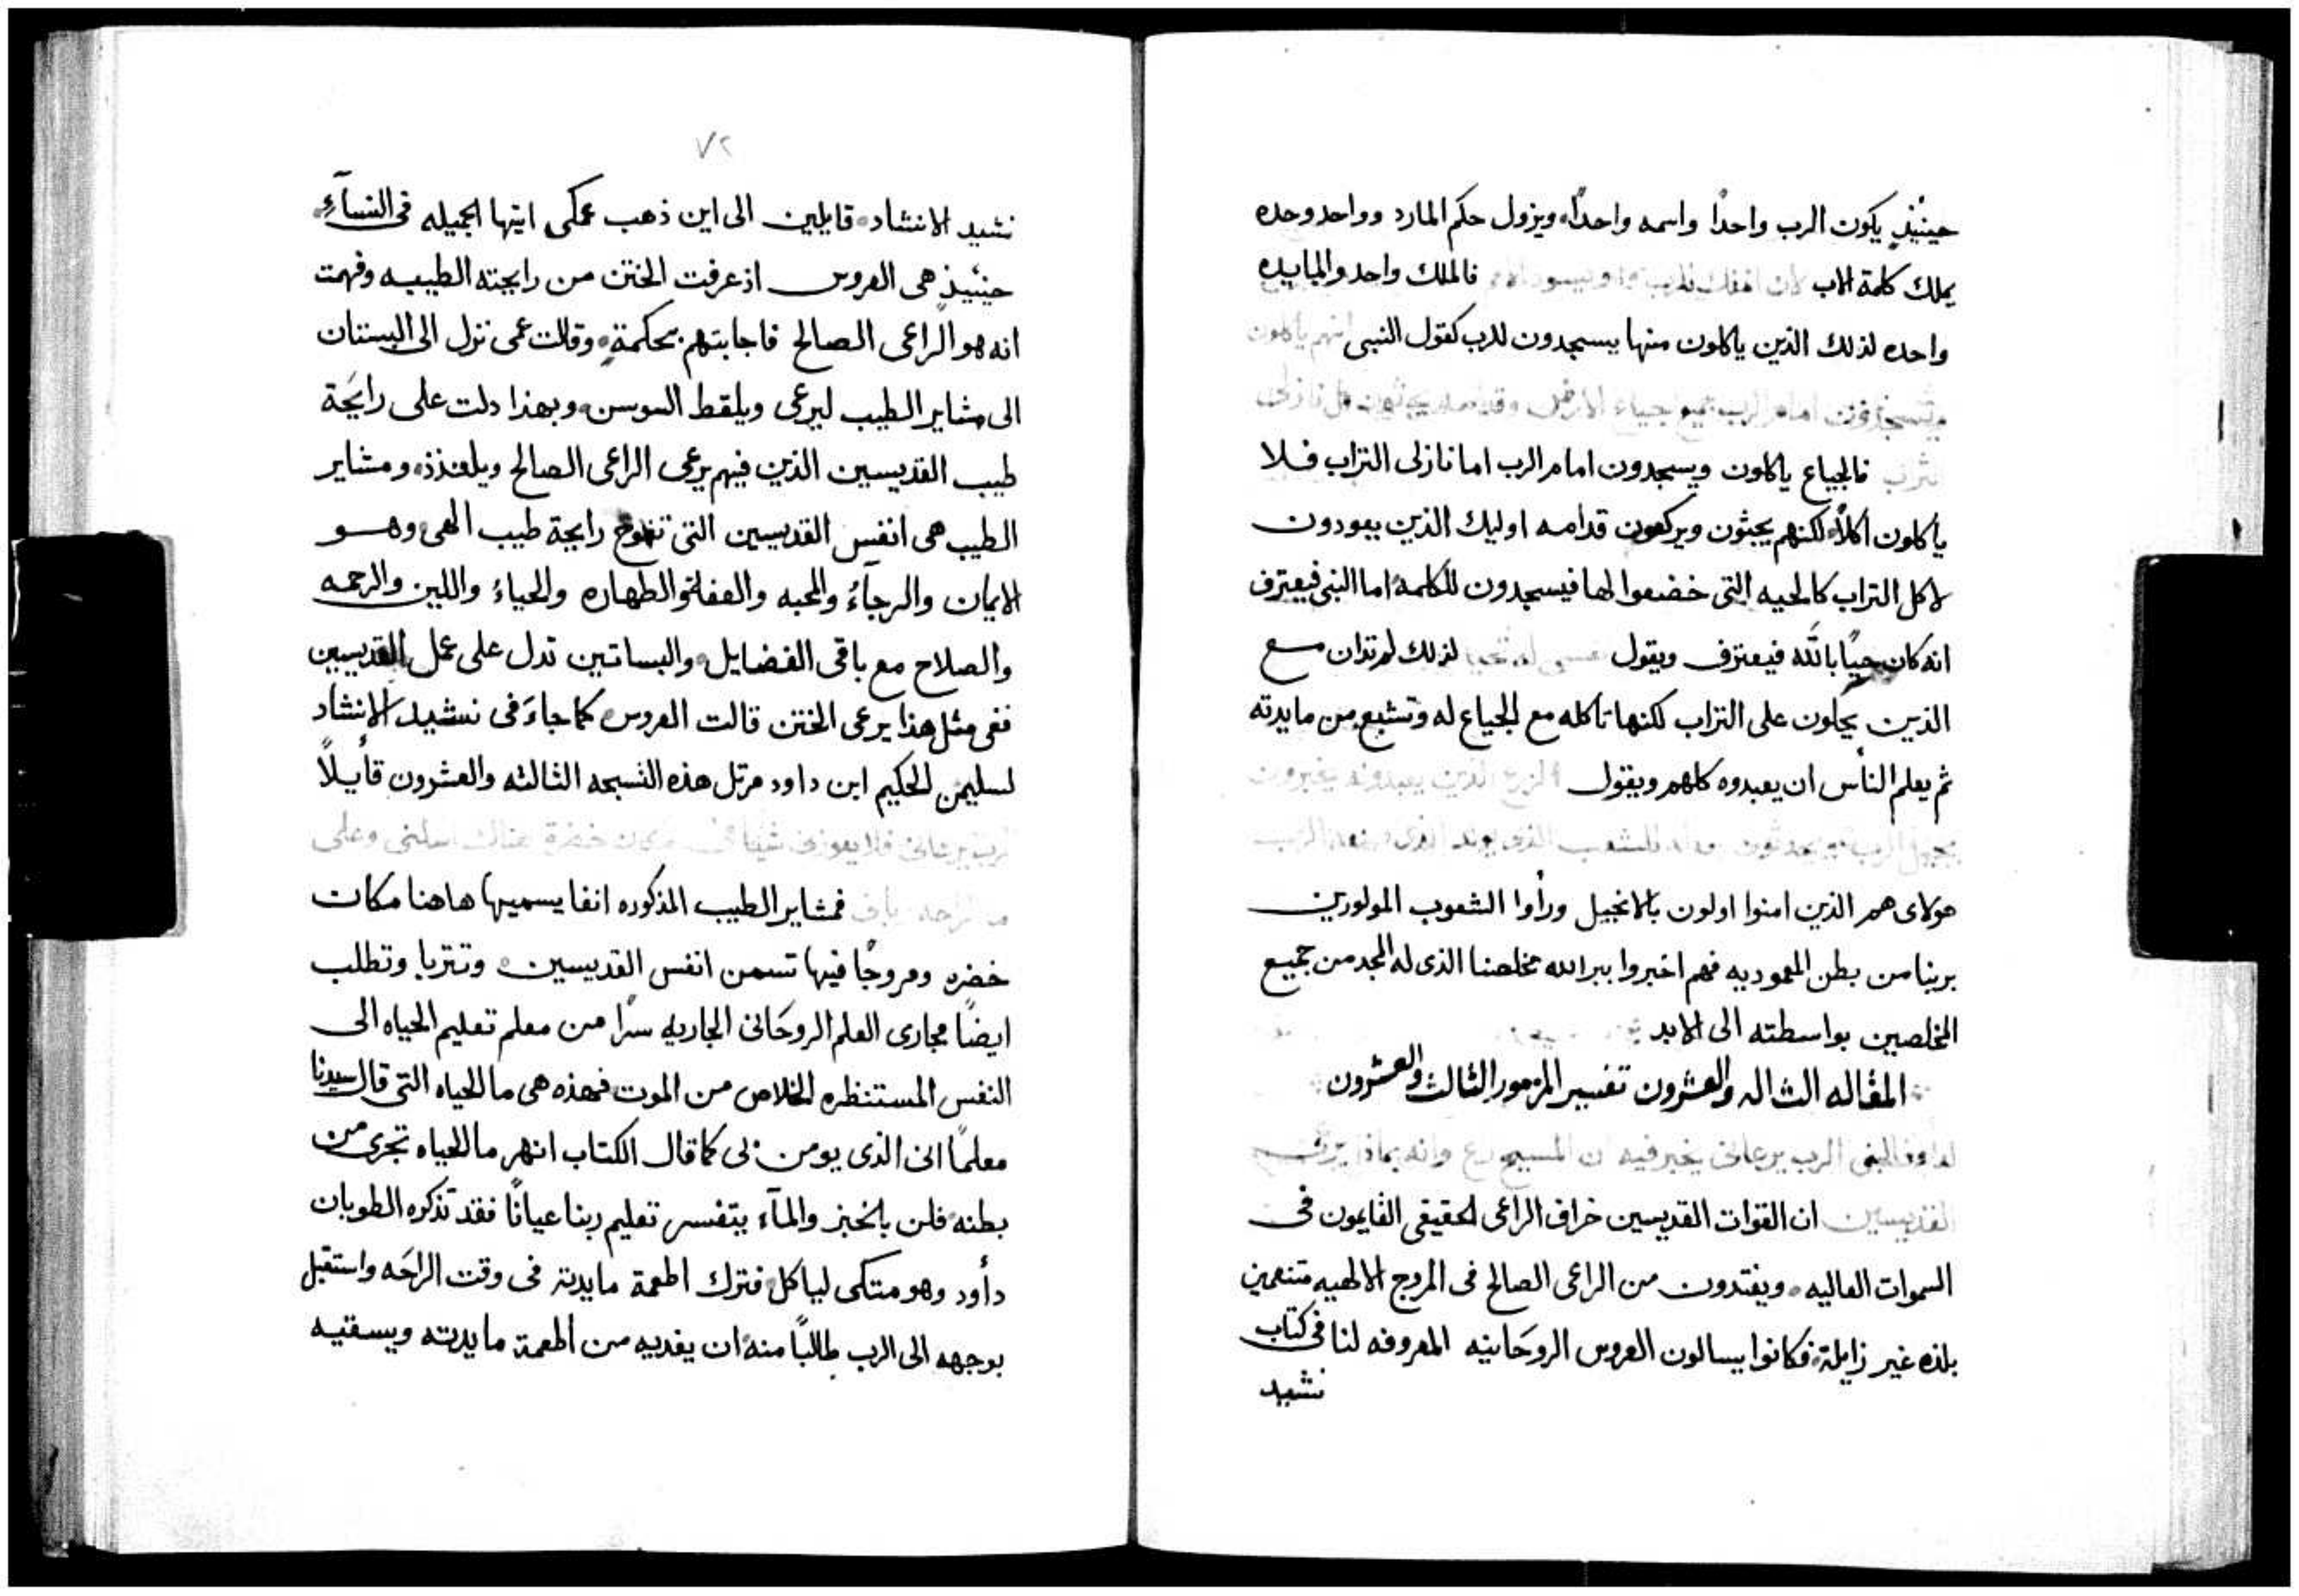 حينيذٍ يكون الرب واحدًا واسمه واحدًا ويزول حكم المارد وواحد وحده
يملك كلمة الاب فالملك واحد والمايده
واحده لذلك الذين ياكلون منها يسجدون للرب كقول النبى انهم ياكلون
امام الرب جميع جياع الارض
فالجياع ياكلون ويسجدون امام الرب اما نازلى التراب فلا
ياكلون اكلاً لكنهم يجثون ويركعون قدامه اوليك الذين يعودون
لاكل التراب كالحيه التى خضعوا لها فيسجدون للكلمة اما النبى فيعترف
انه كان حيًا بالله فيعترف ويقول لذلك لم تدان مع
الذين على التراب لكنها تاكله مع الجياع له وتشبع من مايدته
ثم يعلم الناس ان يعبدوه كلهم ويقول الزرع الذين يعبدونه يخبرون
للشعب الذى يولد الذى الرب
هولاى هم الذين امنوا اولون بالانجيل وراوا الشعوب المولودين
بربنا من بطن المعموديه فهم اخبروا ببر الله مخلصنا الذى له المجد من جميع
المخلصين بواسطته الى الابد
المقاله الثالثه والعشرون تفسير المزمور الثالث والعشرون
الرب يرعانى يخبر فيه ان المسيح راع وانه بماذا
القديسين ان القوات القديسين خراف الراعى الحقيقى القايمون فى
السموات العاليه ويغتدون من الراعى الصالح فى المروج الالهيه متنعمين
بلذه غير زايلة فكانوا يسالون العروس الروحانيه المعروفه لنا فى كتاب
نشيد
٧٢
نشيد الانشاد قايلين الى اين ذهب عمكى ايتها الجميله فى النسآءِ
حينيذٍ هى العروس اذ عرفت الختن من رايحته الطيبه وفهمت
انه هو الراعى الصالح فاجابتهم بحكمةٍ وقالت عمى نزل الى البستان
الى مشاير الطيب ليرعى ويلقط السوسن وبهذا دلت على رايحة
طيب القديسين الذين فيهم يرعى الراعى الصالح ويلتذذ ومشاير
الطيب هى انفس القديسين التى تفوح رايحة طيب الهى وهو
الايمان والرجآءُ والمحبه والعفه والطهاره والحياءُ واللين والرحمه
والصلاح مع باقى الفضايل والبساتين تدل على عمل القديسين
ففى مثل هذا يرعى الختن قالت العروس كما جاءَ فى نشيد الانشاد
لسليمن الحكيم ابن داود مرتل هذه التسبحه الثالثه والعشرون قايلاً
الرب يرعانى فلا يعوزنى شيا فى مكان خضرة هناك اسكننى وعلى
فمشاير الطيب المذكوره انفا يسميها هاهنا مكان
خضره ومروجًا فيها تسمن انفس القديسين وتتربا وتطلب
ايضًا مجارى العلم الروحَانى الجاريه سرًا من معلم تعليم الحياه الى
النفس المستنظره الخلاص من الموت فهذه هى ما الحياه التى قال سيدنا
معلمًا انى الذى يومن بى كما قال الكتاب انهر ما الحياه تجرى من
بطنه فلن بالخبز والمآء يتفسر تعليم ربنا عيانًا فقد تذكره الطوبان
دأود وهو متكى لياكل فترك اطعمة مايدتة فى وقت الراحَه واستقبل
بوجهه الى الرب طالبًا منه ان يغديه من اطعمة مايدته ويسقيه